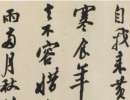 自我來黃
寒食年
去不容惜
雨兩月秋